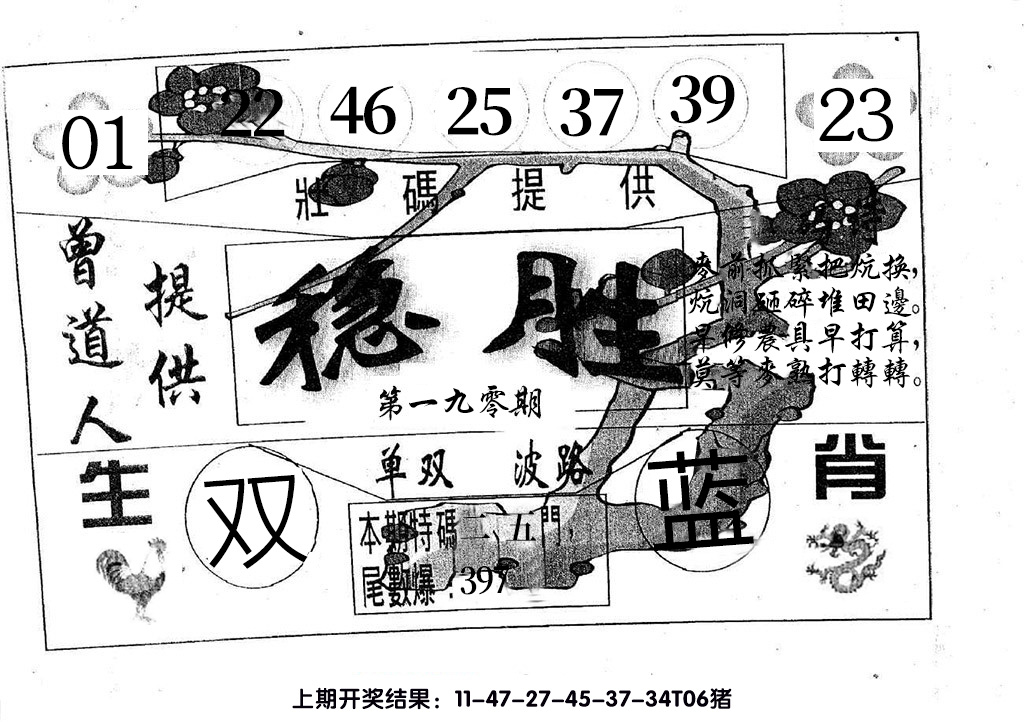 01 22 46 25 37 39 23
壯碼提供
曾道人
提供
稳胜
第一九零期
麥前抓緊把炕換，
炕洞砸碎堆田邊。
早修農具早打算，
莫等麥熟打轉轉。
生肖
单双
双
波路
蓝
本期特碼二、五門，
尾數爆：397
上期开奖结果：11-47-27-45-37-34T06猪